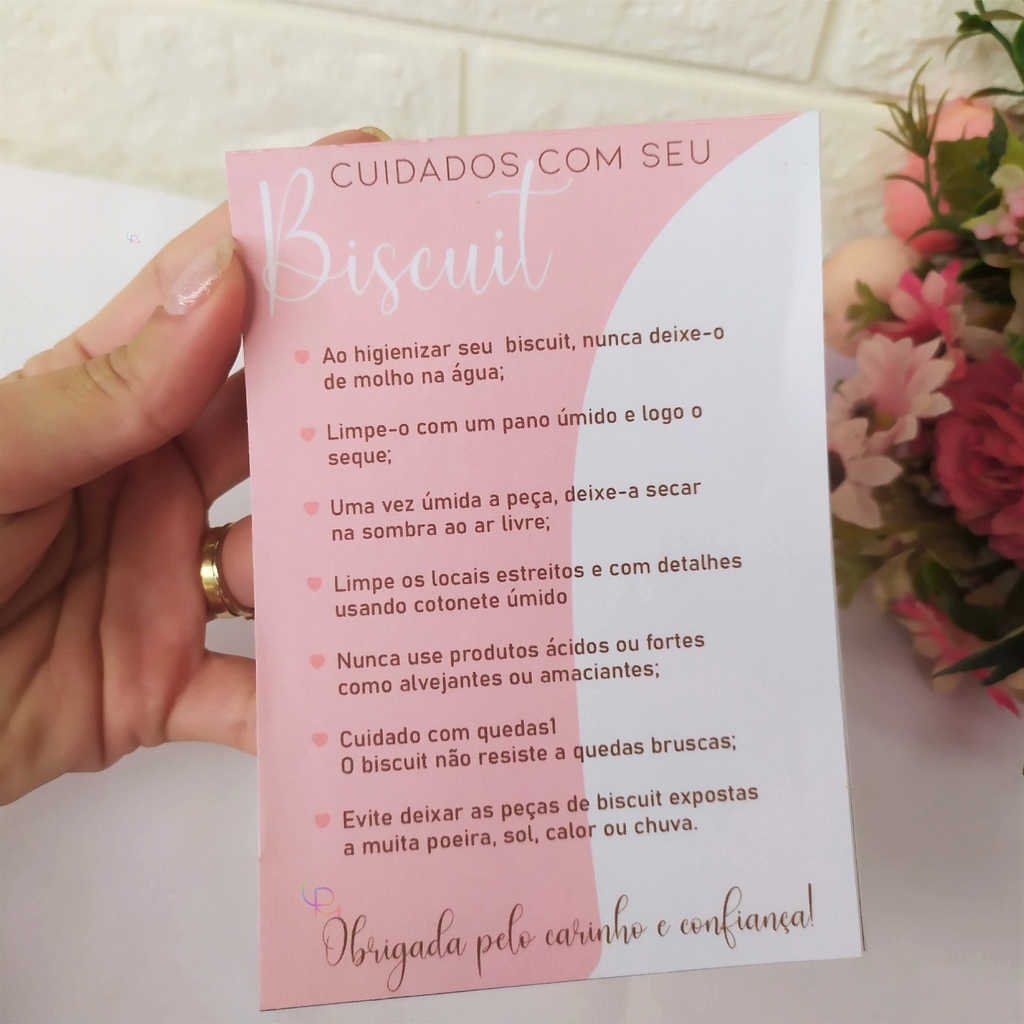 CUIDADOS COM SEU
Biscuit
Ao higienizar seu biscuit, nunca deixe-o
de molho na água;
Limpe-o com um pano úmido e logo o
seque;
Uma vez úmida a peça, deixe-a secar
na sombra ao ar livre;
Limpe os locais estreitos e com detalhes
usando cotonete úmido
Nunca use produtos ácidos ou fortes
como alvejantes ou amaciantes;
Cuidado com quedas1
O biscuit não resiste a quedas bruscas;
Evite deixar as peças de biscuit expostas
a muita poeira, sol, calor ou chuva.
Obrigada pelo carinho e confiança!